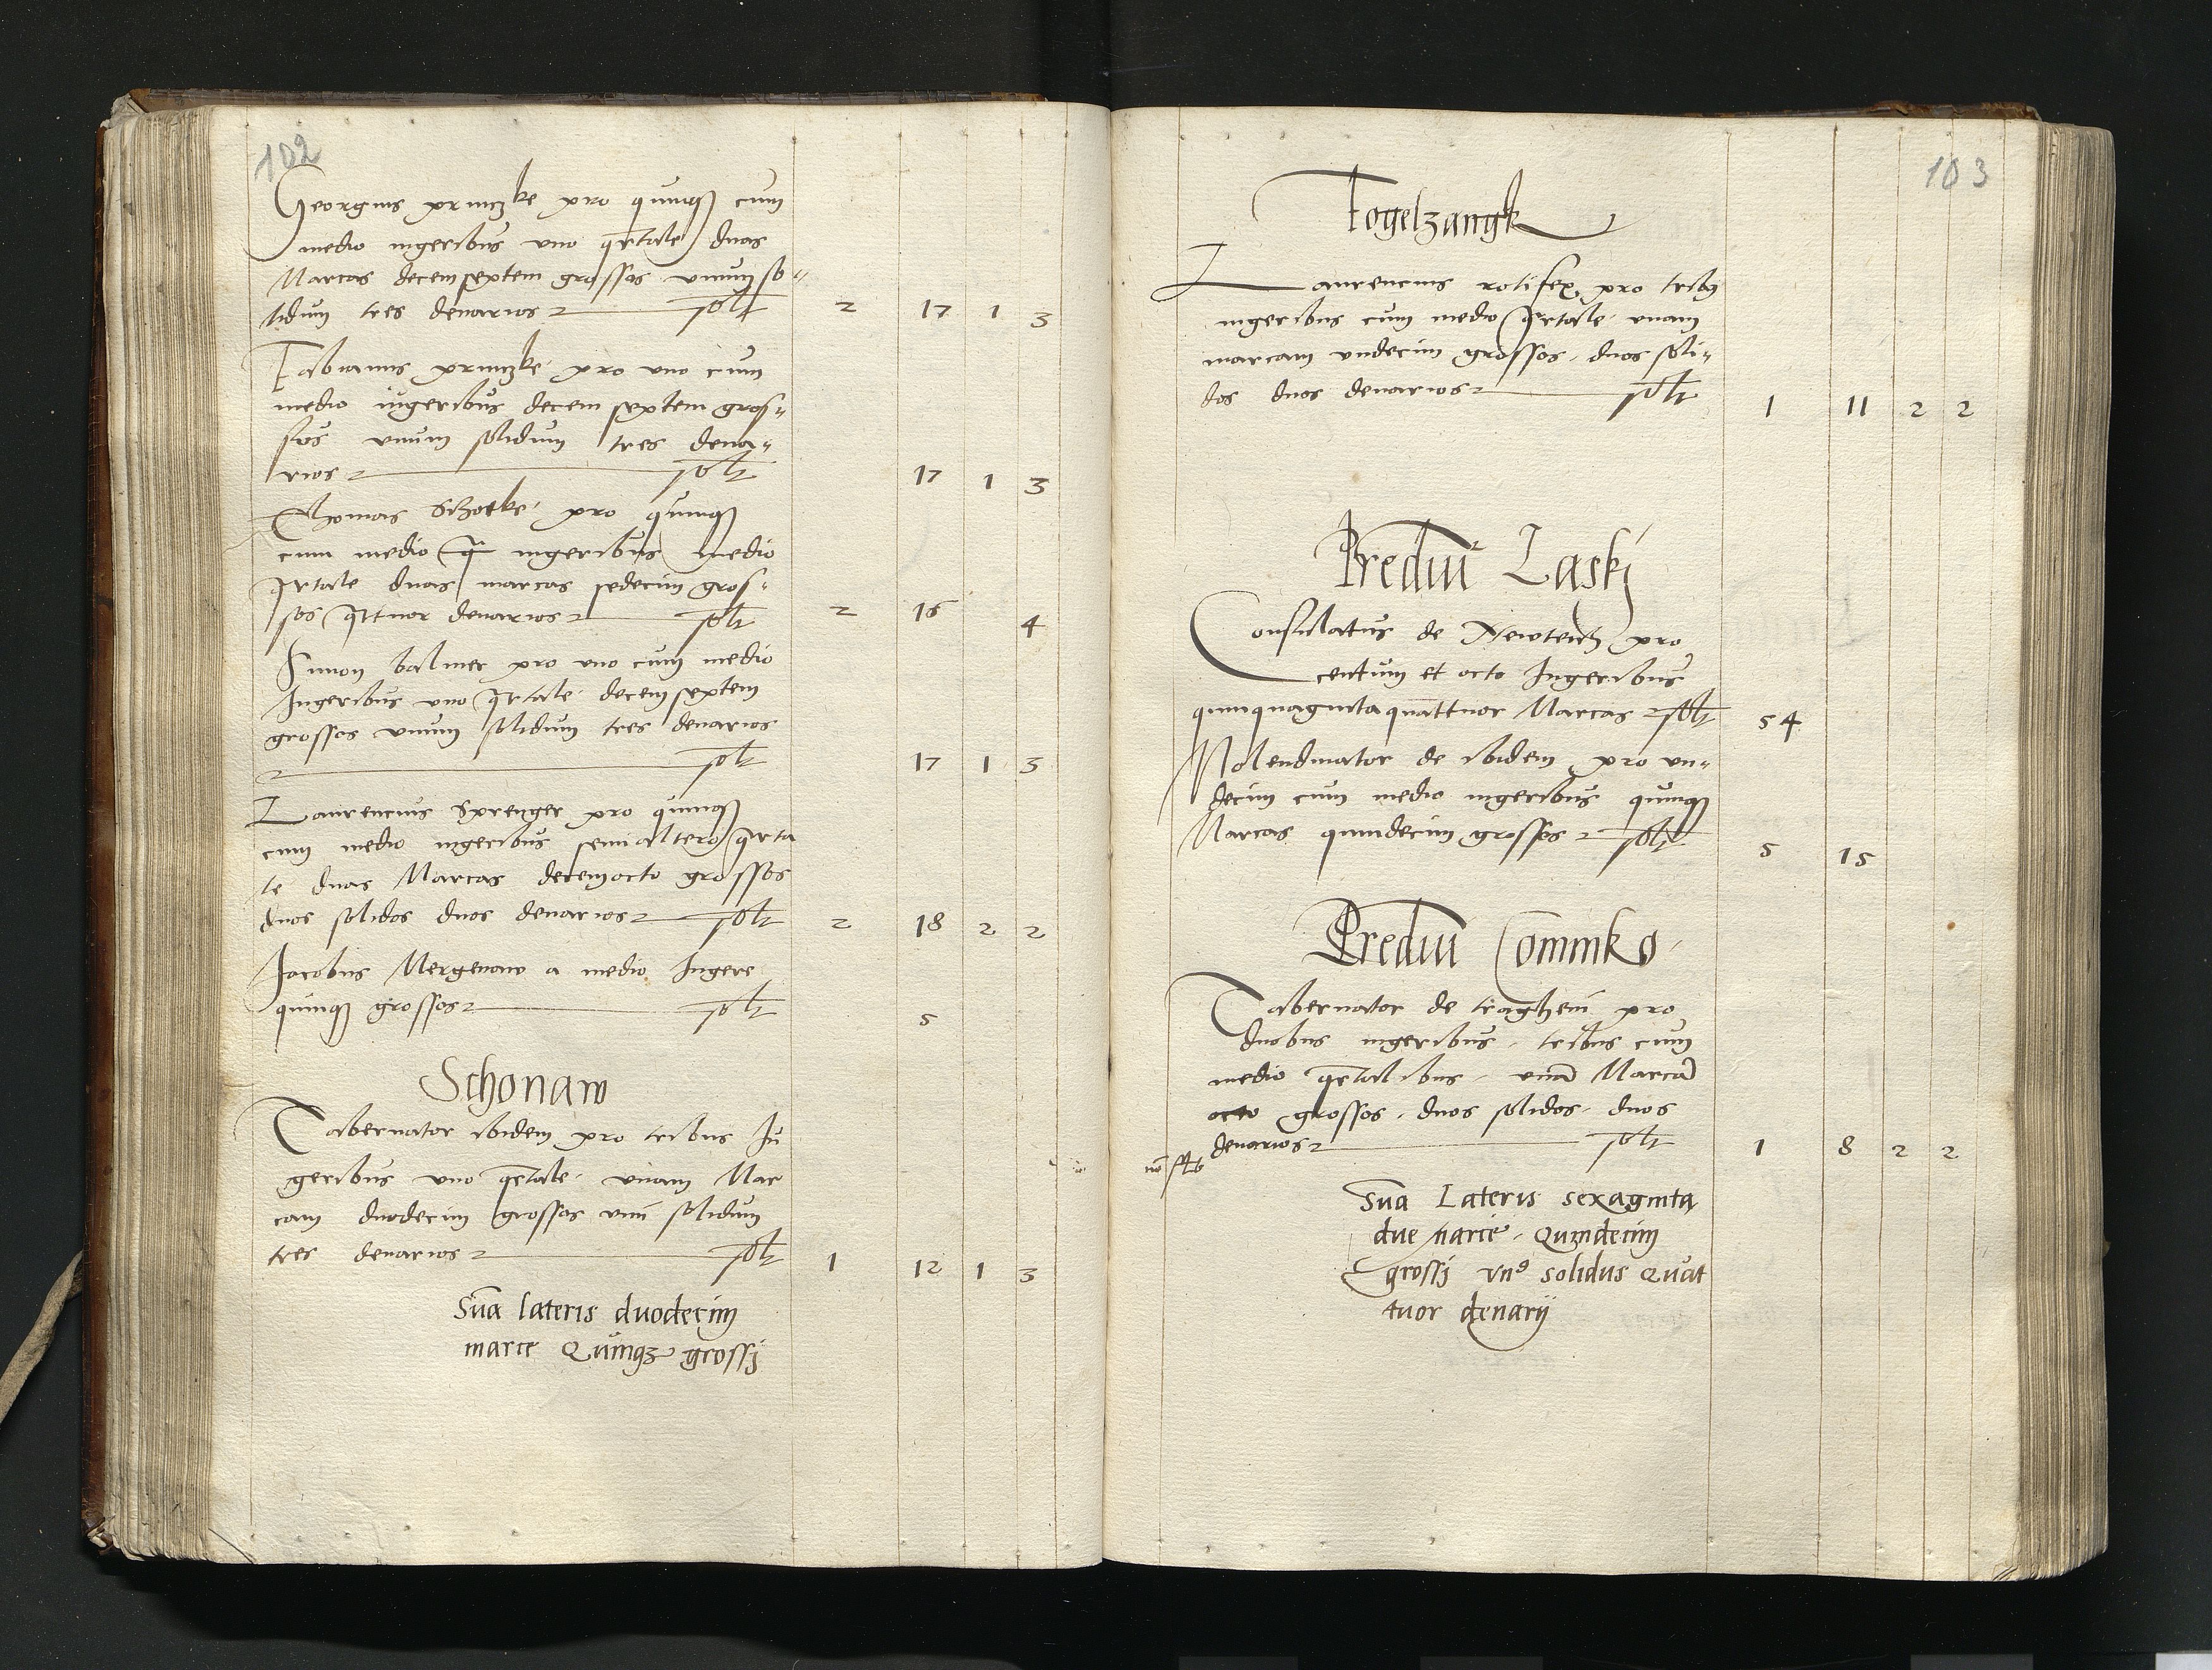 102
Georgius prunczke pro quinqȝ cum
medio iugeribus uno qrtale duas
Marcas decemseptem grossos unum so„
lidum tres denarios solt 2 17 1 3
Fabianus prunczke pro uno cum
medio iugeribus decem septem gros„
sos unum solidum tres dena„
rios solt 17 1 3
Thomas Schotke pro quinqȝ
cum medio iugeribus medio
qrtale duas marcas sedecim gros„
sos qttuor denarios solt 2 16 4
Simon balmer pro uno cum medio
Iugeribus uno qrtale decem septem
grossos unum solidum tres denarios
solt 17 1 3
Laurencius Sprenger pro quinqȝ
cum medio iugeribus semialtero qrta
le duas Marcas decemocto grossos
duos solidos duos denarios solt 2 18 2 2
Jacobus Mergenaw a medio Iugere
quinqȝ grossos solt 5
Schonaw
Tabernator ibidem pro tribus Iu
geribus uno qrtale unam Mar
cam duodecim grossos unū solidum
tres denarios solt 1 12 1 3
Sūa lateris duodecim
marce Quinqȝ grossij
103
Fogelzangk
Laurencius rotifex pro tribȝ
iugeribus cum medio qrtale unam
marcam undecim grossos duos soli„
dos duos denarios solt 1 11 2 2
Prediū Laskj
Consulatus de Newteich pro
centum et octo Iugeribus
quinquaginta quattuor Marcas solt 54
Molendinator de ibidem pro un„
decim cum medio iugeribus quinqȝ
Marcas quindecim grossos solt 5 15
Prediū
Tabernator de tragheim pro
duobus iugeribus tribus cum
medio qrtalibus unā Marcā
octo grossos duos solidos duos
denarios solt 1 8 2 2
Sūa Lateris sexaginta
due Marce Quindecim
grossij vnꝰ solidus Quat
tuor denarij